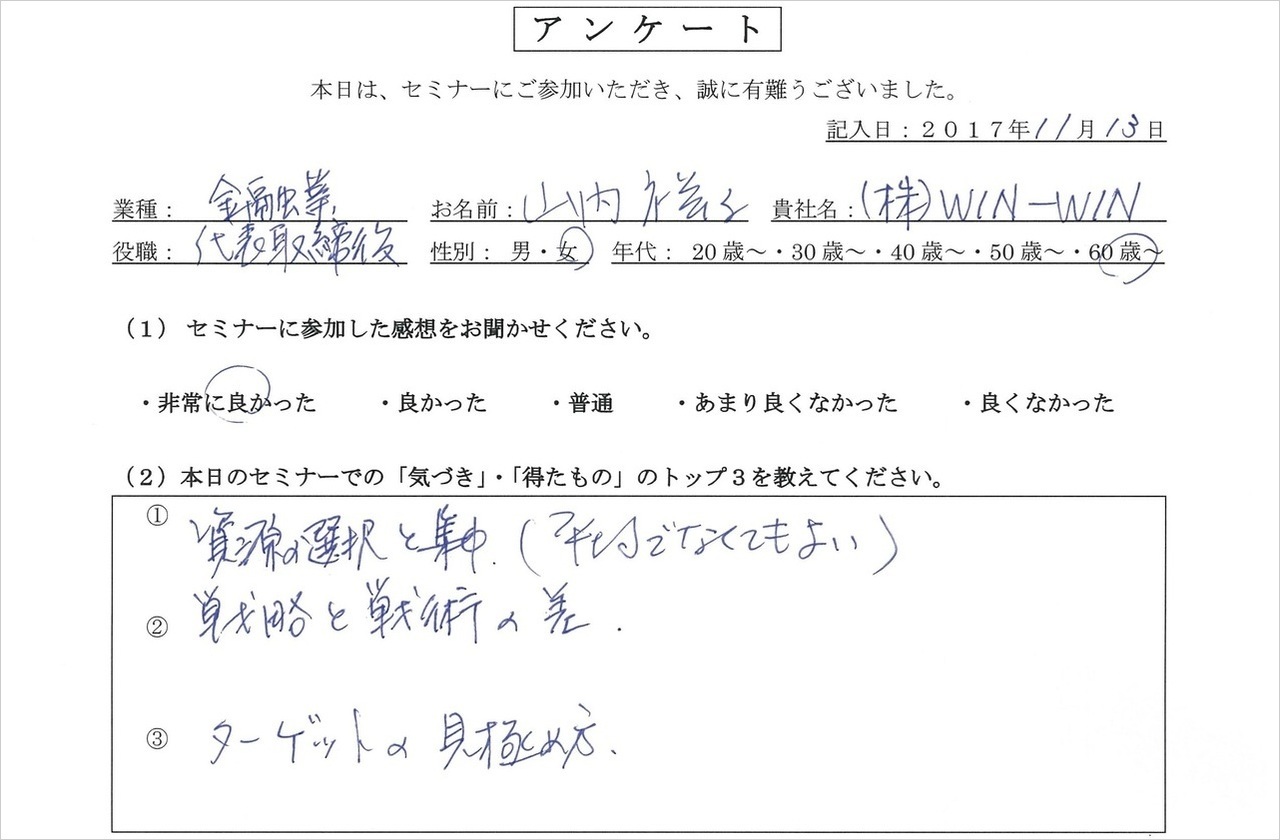 アンケート
本日は、セミナーにご参加いただき、誠に有難うございました。
記入日：２０１７年11月13日
業種： 金融業 お名前：山内 貴社名：(株)WIN-WIN
役職： 代表取締役 性別： 男・女 年代： 20歳～・30歳～・40歳～・50歳～・60歳～
（１） セミナーに参加した感想をお聞かせください。
・非常に良かった ・良かった ・普通 ・あまり良くなかった ・良くなかった
（２）本日のセミナーでの「気づき」・「得たもの」のトップ３を教えてください。
① 資源の選択と集中.(平均でなくてもよい)
② 戦略と戦術の差.
③ ターゲットの見極め方.